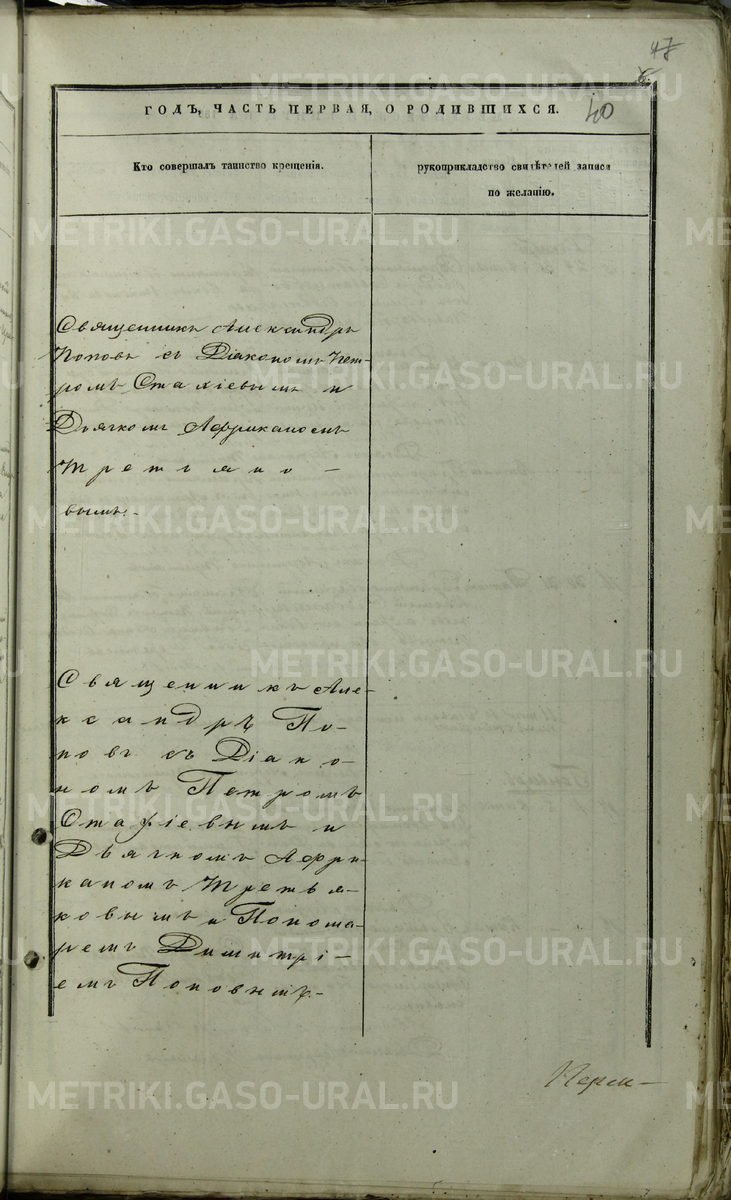 47
40
ГОДЪ, ЧАСТЬ ПЕРВАЯ, О РОДИВШИХСЯ.
Кто совершалъ таинство крещенія.
рукоприкладство свидѣтелей записи
по желанію.
Священникъ Александръ
Поповъ съ Діакономъ Пет-
ромъ Стахіевымъ и
Дьячкомъ Африканомъ
Третьяко-
вымъ.-
Священникъ Але-
ксандръ По-
повъ съ Діако-
номъ Петромъ
Стахіевымъ и
Дьячкомъ Афри-
каномъ Третья-
ковымъ и Понома-
ремъ Димитрі-
емъ Поповымъ.-
METRIKI.GASO-URAL.RU